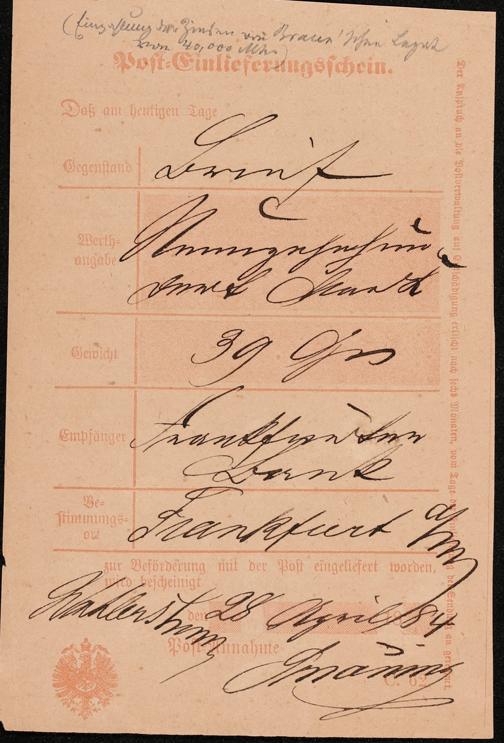 (Einzahlung der Zinsen von
von 40,000 Mk.)
Post-Einlieferungsschein.
Daß am heutigen Tage
Gegenstand Brief
Werth-
angabe
Neunzehnhun
dert Mark
Gewicht 39 Gr
Empfänger Frankfurter
Bank
Be-
stimmungs-
ort
Frankfurt a/M
zur Beförderung mit der Post eingeliefert worden,
wird bescheinigt
den 28 April 84
Post-Annahme
C. 62
Der Anspruch an die Postverwaltung auf Entschädigung erlischt nach sechs Monaten, vom Tage der Einlieferung der Sendung an gerechnet.